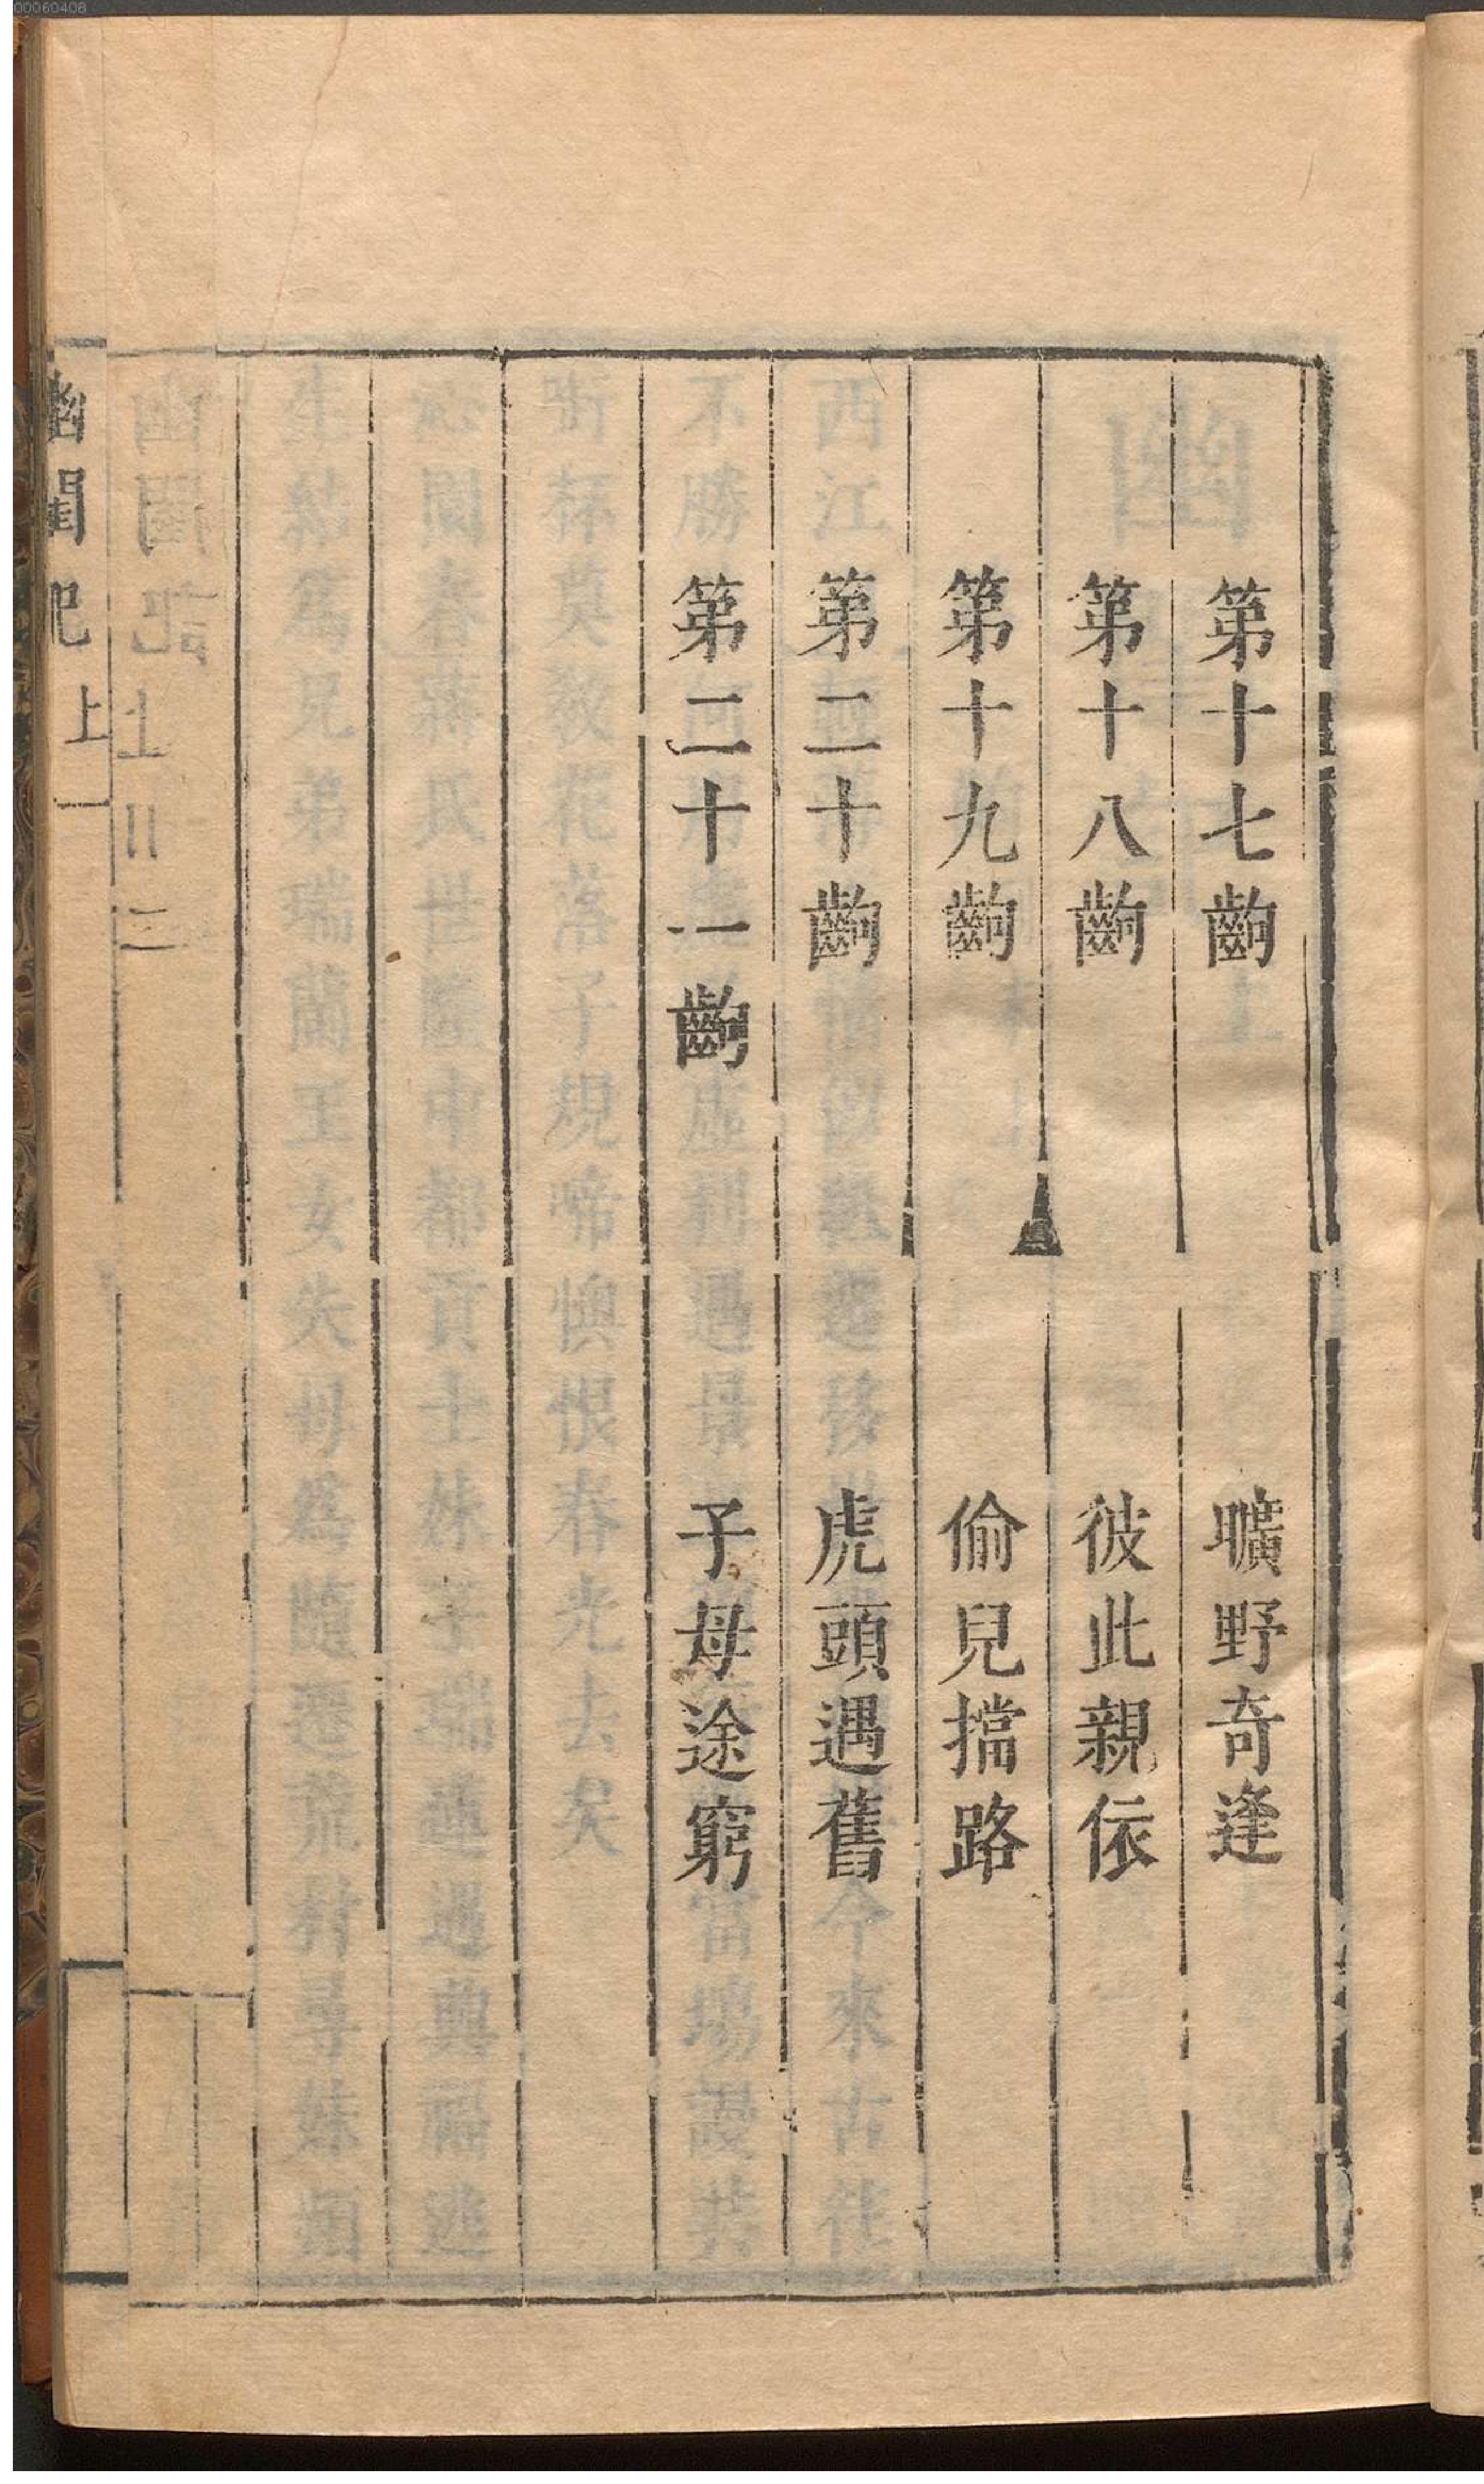 第十七齣 曠野奇逢
第十八齣 彼此親依
第十九齣 偷兒擋路
第二十齣 虎頭遇舊
第二十一齣 子母途窮
幽閨記 上 一
00060408